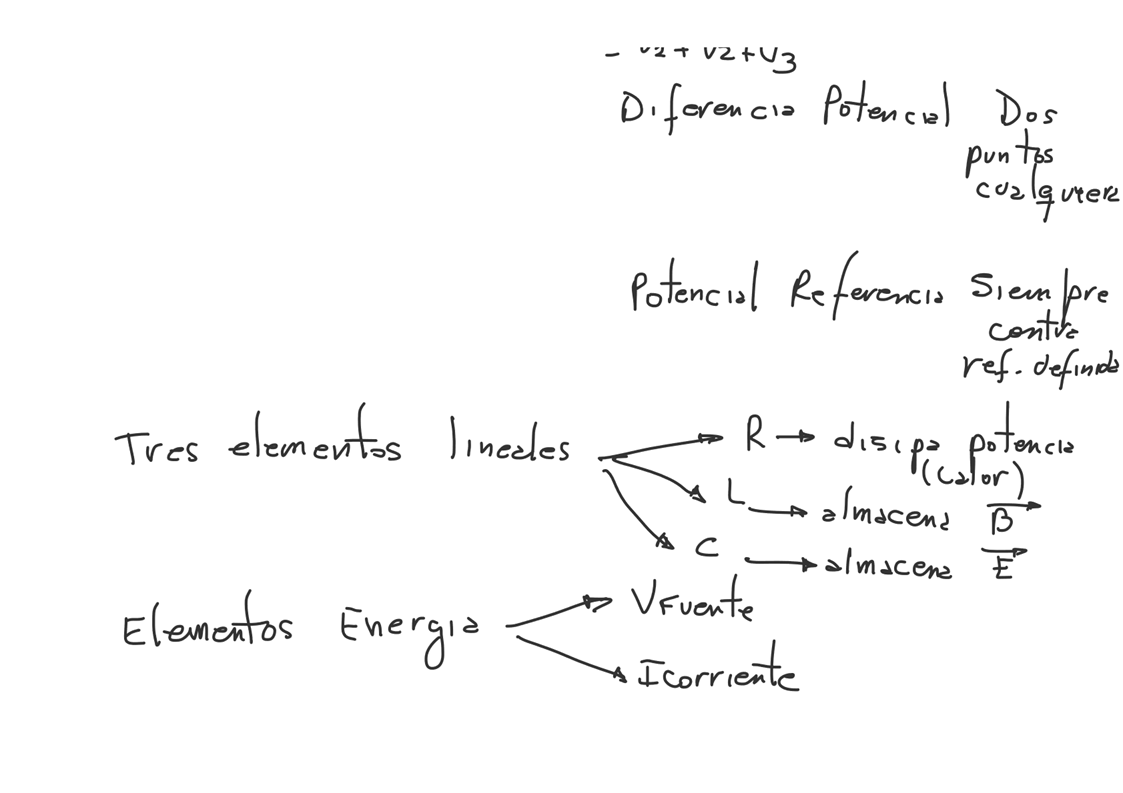 - V2 + V2 + V3
Diferencia Potencial Dos
puntos
cualquiera
Potencial Referencia Siempre
contra
ref. definida
Tres elementos lineales → R → disipa potencia
(calor)
L → almacena B
C → almacena E
VFuente
Elementos Energia
Icorriente